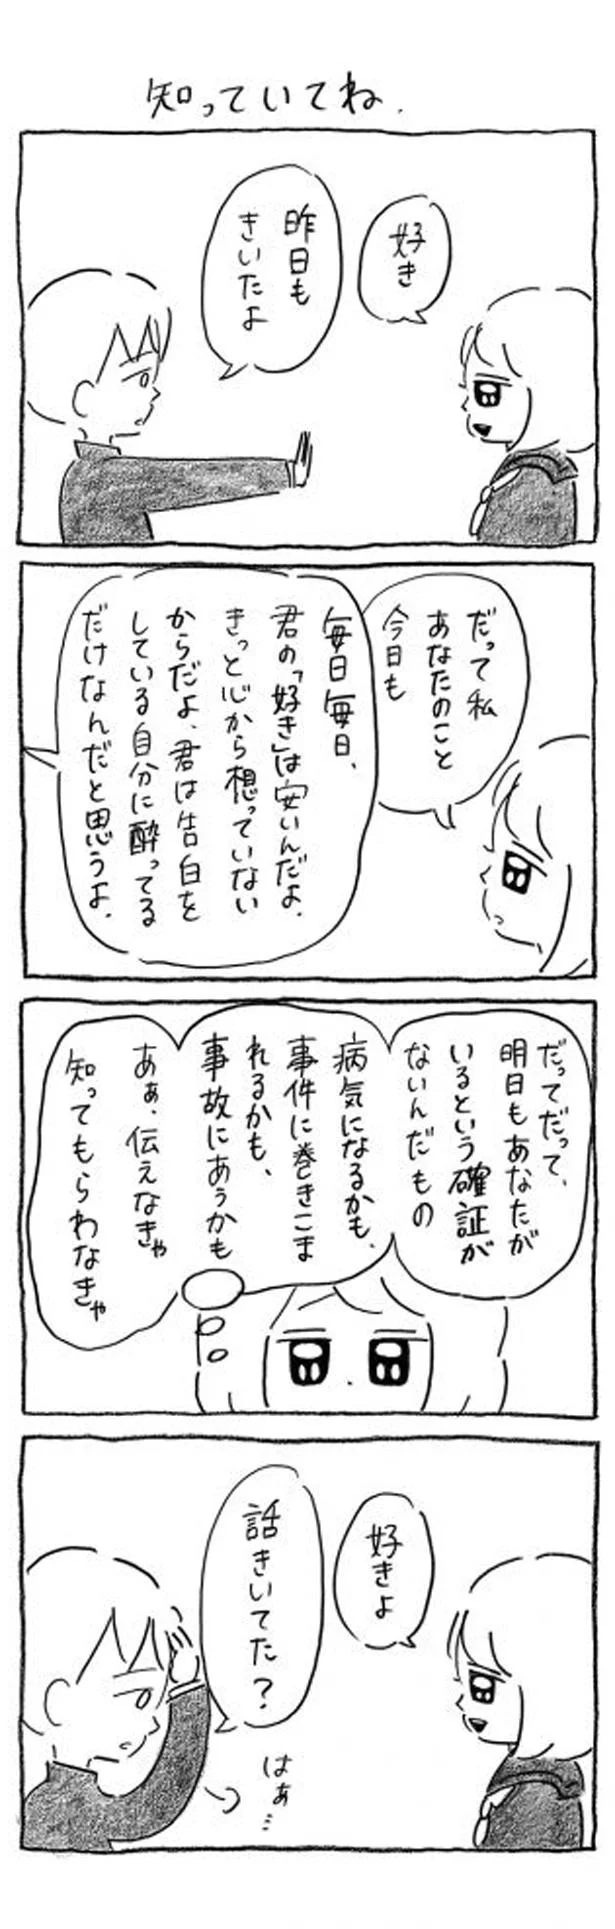 知っていてね.
好き
昨日も
きいたよ
だって私
あなたのこと
今日も
毎日毎日、
君の「好き」は安いんだよ.
きっと心から想っていない
からだよ、君は告白を
している自分に酔ってる
だけなんだと思うよ.
だってだって、
明日もあなたが
いるという確証が
ないんだもの
病気になるかも、
事件に巻きこま
れるかも、
事故にあうかも
あぁ、伝えなきゃ
知ってもらわなきゃ
好きよ
話きいてた?
はぁ…